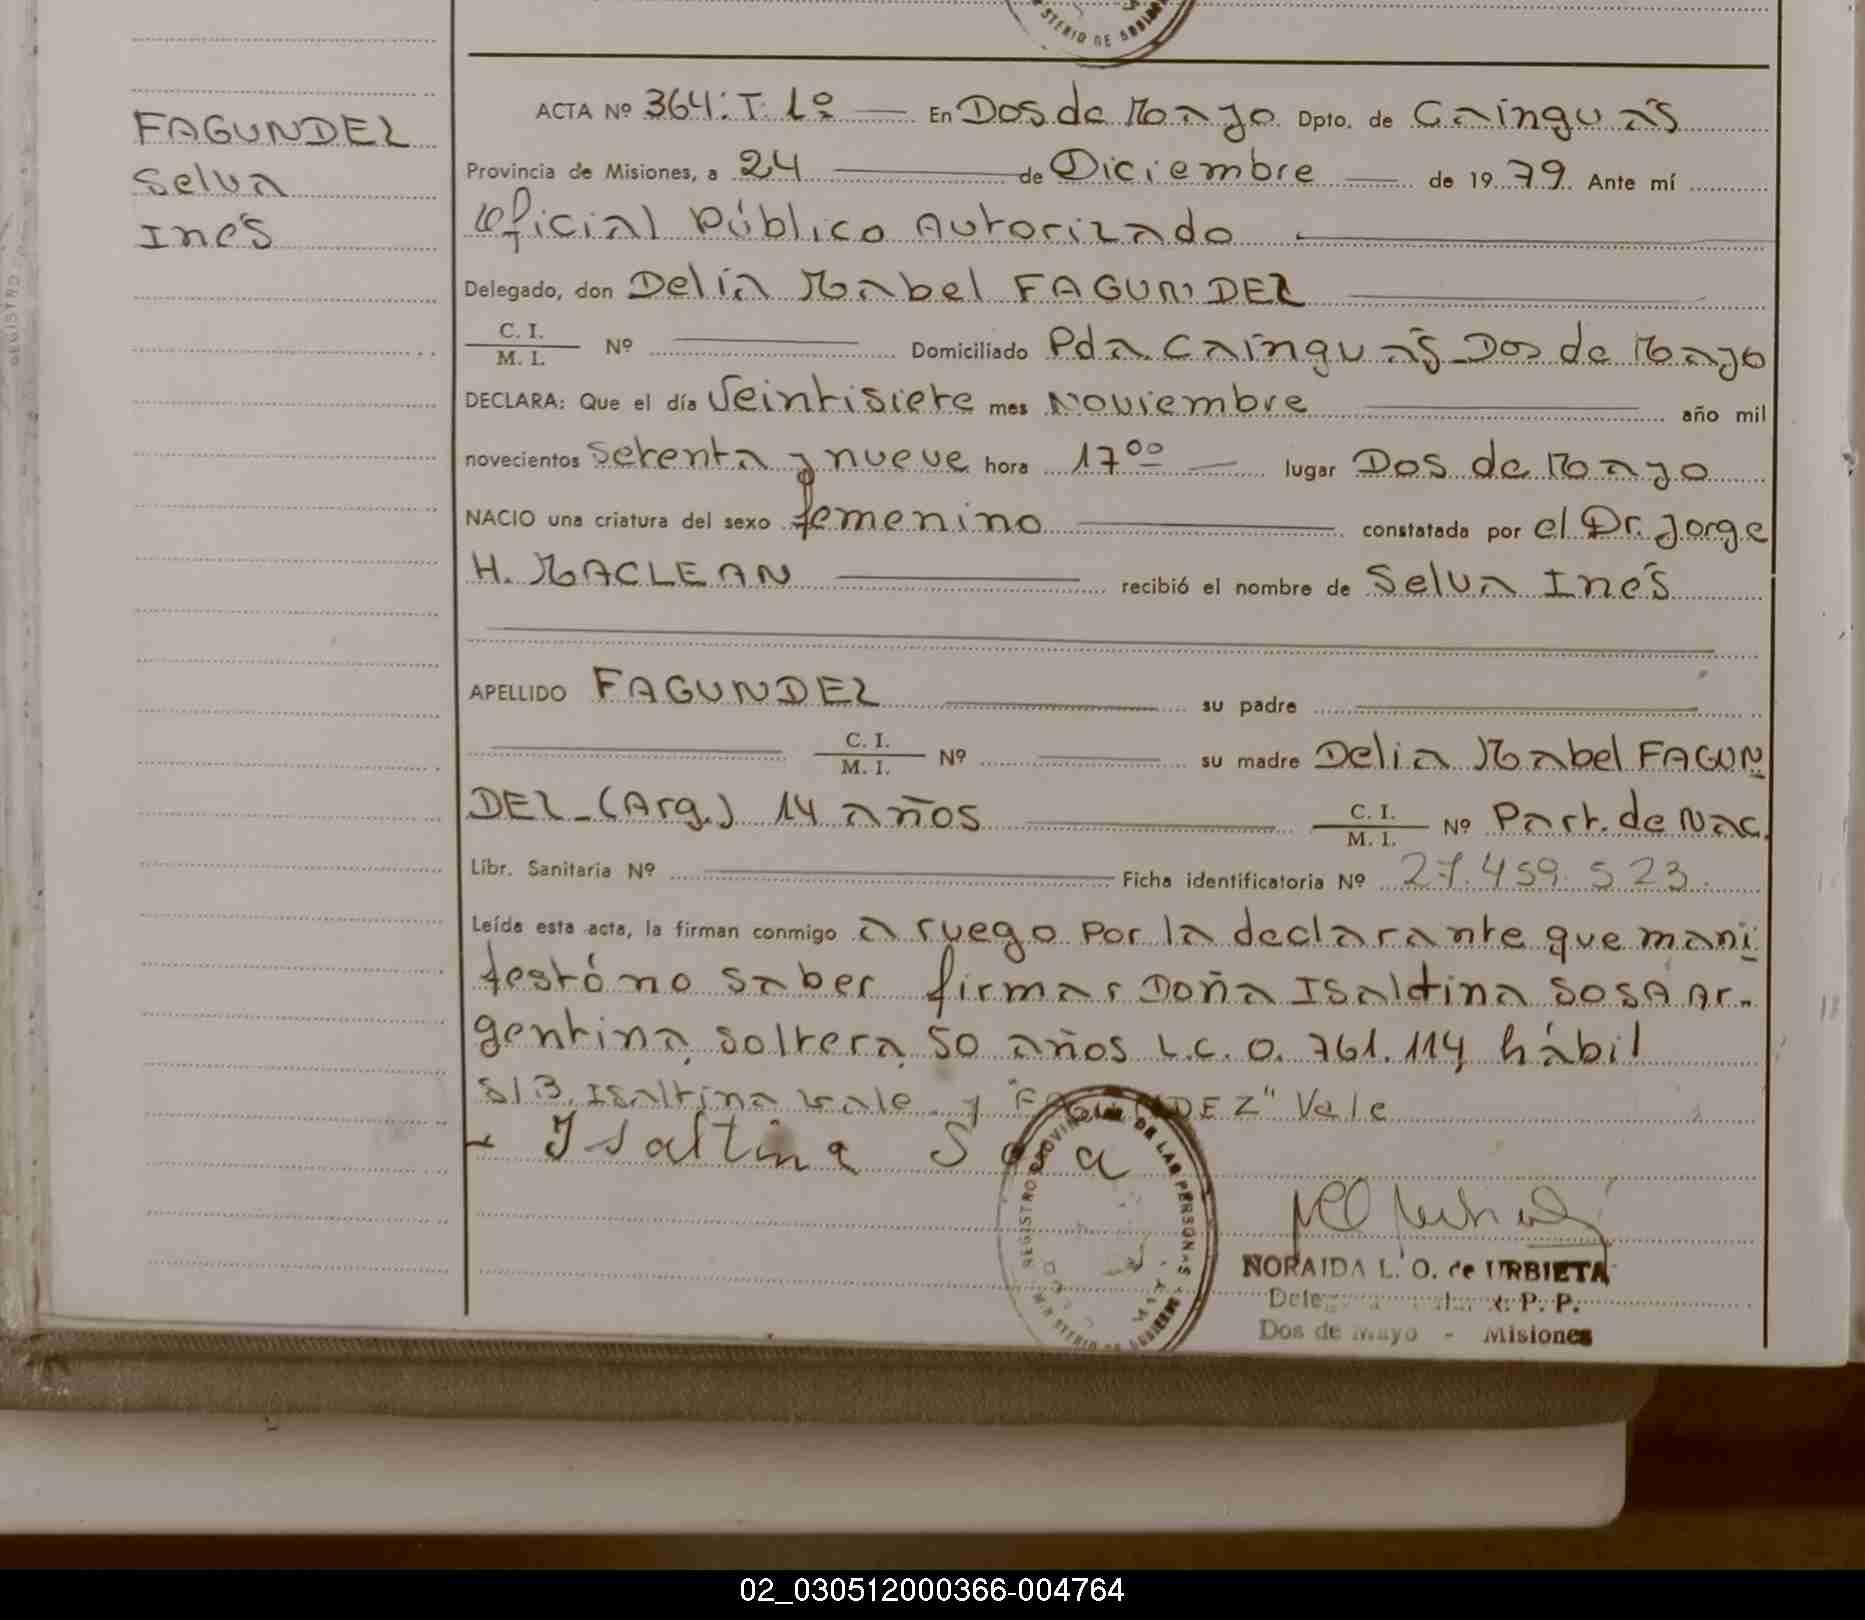 STERIO DE GOBIERNO
FAGUNDEZ
Selva
Inés
ACTA Nº 364: T. 1º En Dos de Mayo Dpto. de Cainguás
Provincia de Misiones, a 24 de Diciembre de 1979. Ante mí
Oficial Público Autorizado
Delegado, don Delia Mabel FAGUNDEZ
C. I.
M. I. Nº Domiciliado Pda. Cainguás - Dos de Mayo
DECLARA: Que el día Veintisiete mes Noviembre año mil
novecientos setenta y nueve hora 17ºº lugar Dos de Mayo
NACIO una criatura del sexo femenino constatada por el Dr. Jorge
H. MACLEAN recibió el nombre de Selva Inés
APELLIDO FAGUNDEZ su padre
C. I.
M. I. Nº su madre Delia Mabel FAGUN
DEZ - (Arg.) 14 años C. I.
M. I. Nº Part. de Nac.
Libr. Sanitaria Nº Ficha identificatoria Nº 27.459.523.
Leída esta acta, la firman conmigo a ruego por la declarante que mani
festó no saber firmar Doña Isaldina SOSA Ar-
gentina, soltera, 50 años L.C. 0.761.114 hábil
S/B. Isaltina vale y "FAGUNDEZ" Vale
Isaltina Sosa
REGISTRO PROVINCIAL DE LAS PERSONAS
NORAIDA L. O. de URBIETA
R. P. P.
Dos de Mayo - Misiones
02_030512000366-004764